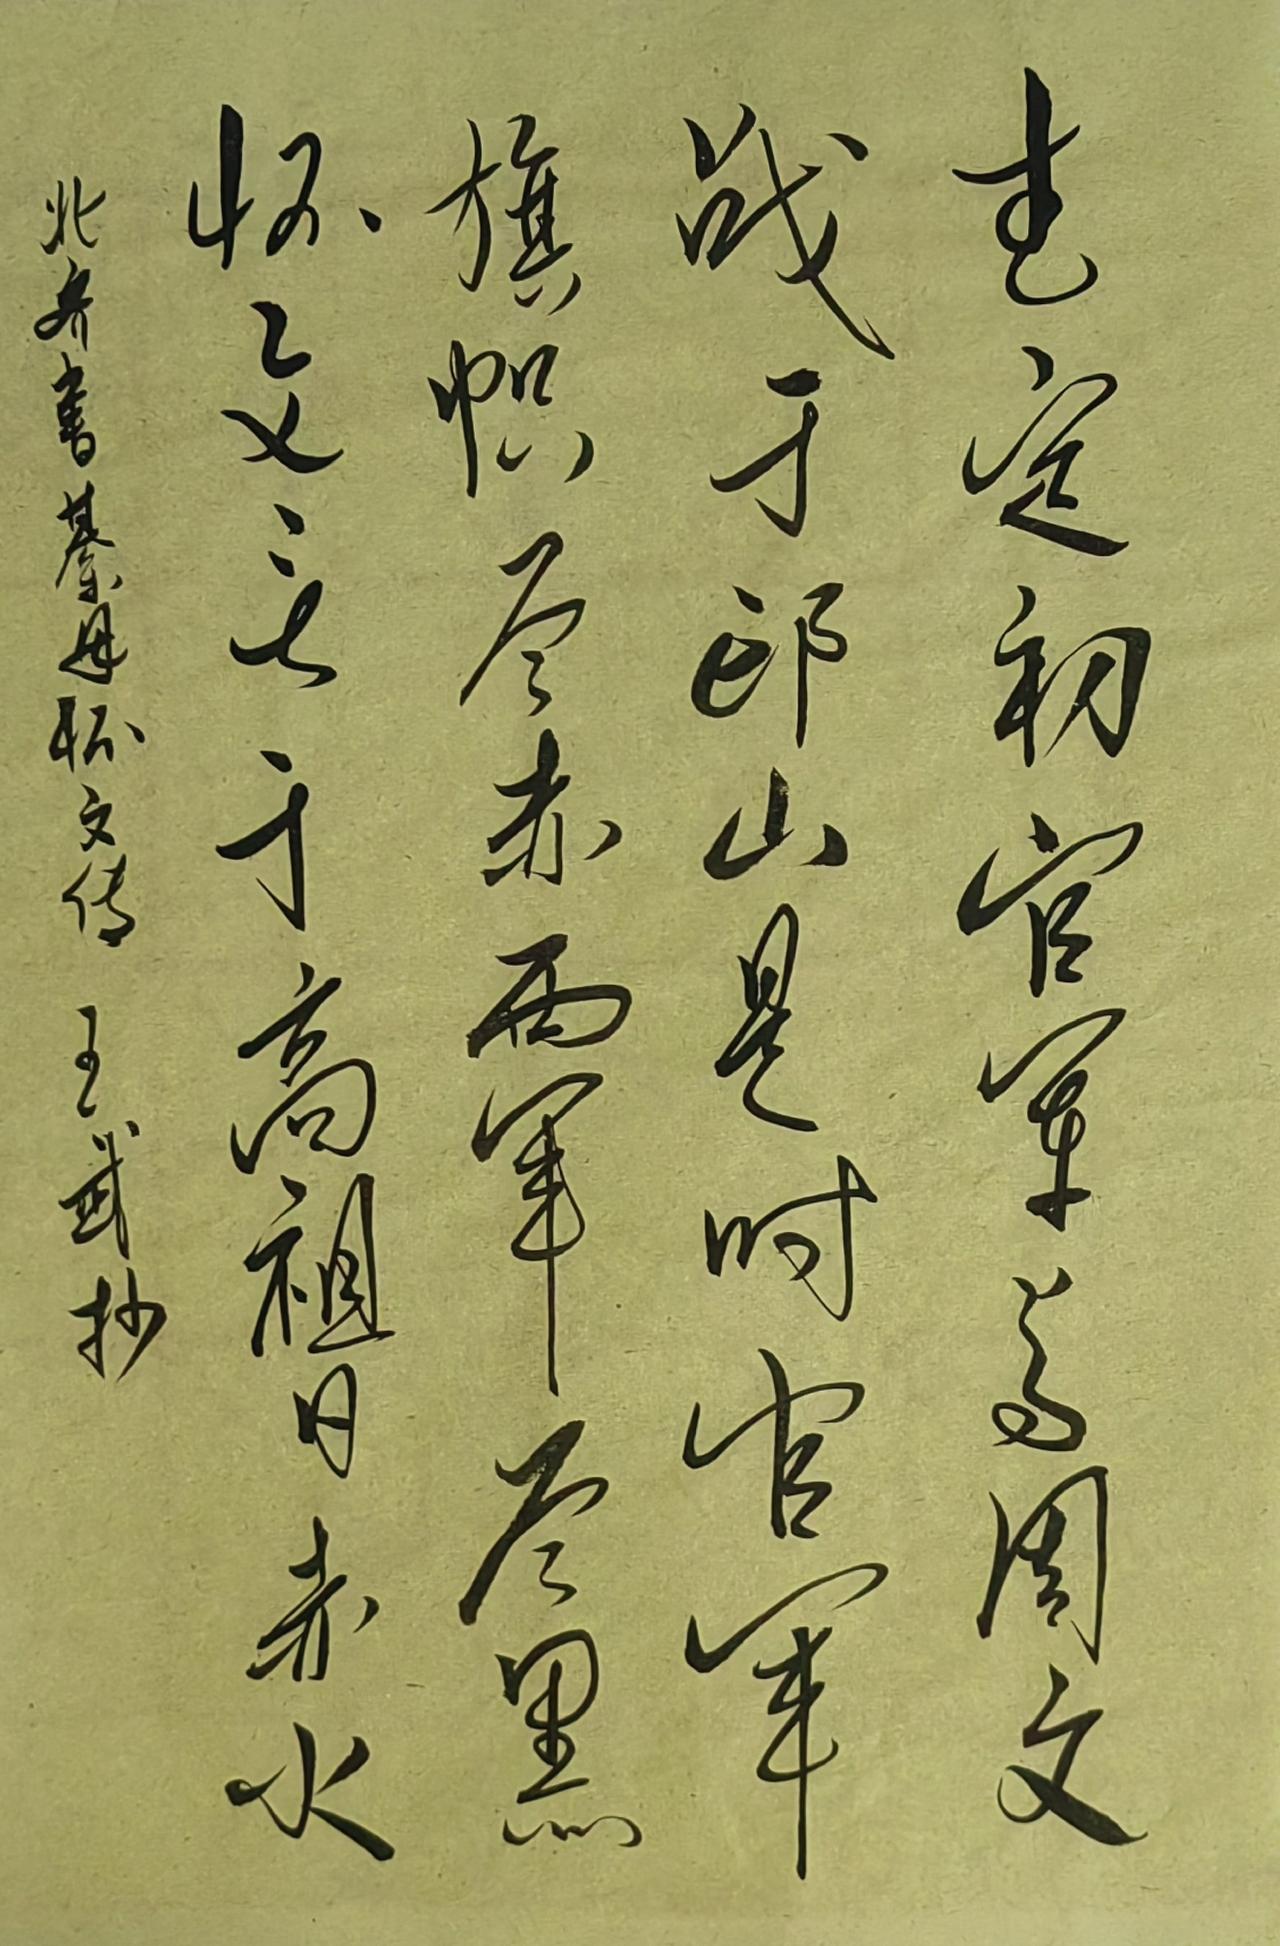 武定初官军与周文
战于邙山是时官军
旗帜尽赤西军尽黑
怀文言于高祖曰赤火
北齐书綦母怀文传 王武抄